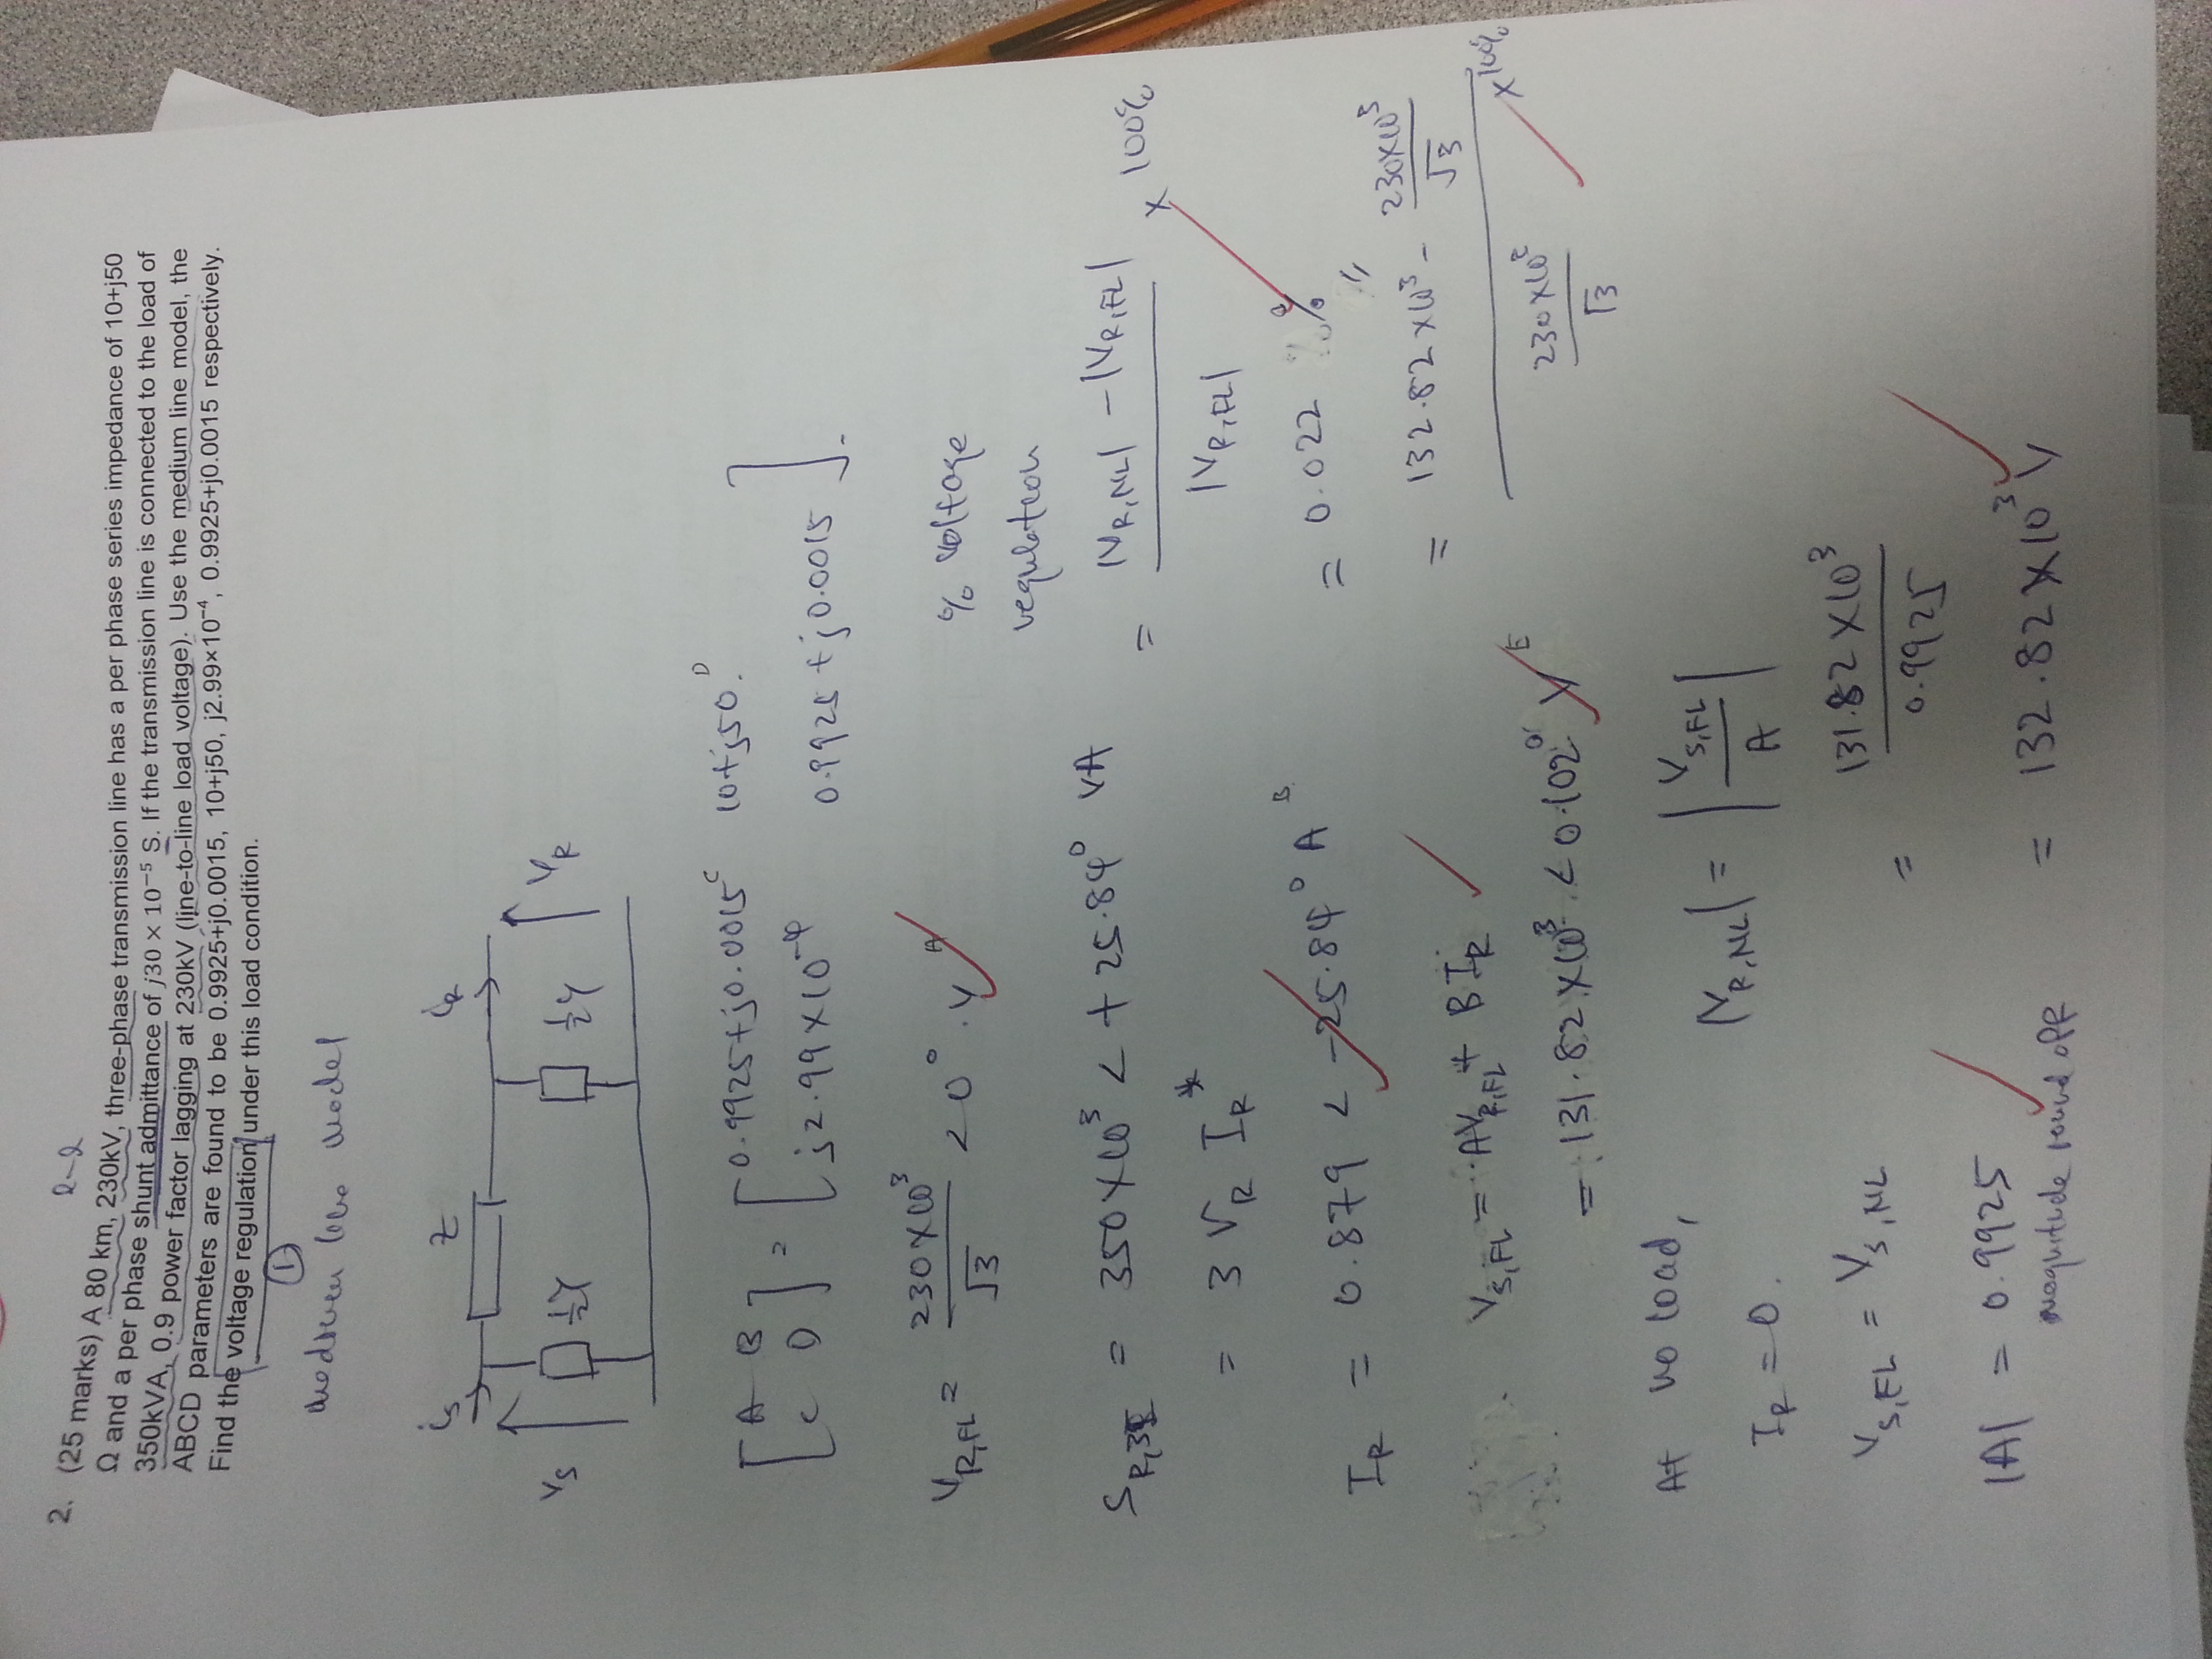 l-l
2. (25 marks) A 80 km, 230kV, three-phase transmission line has a per phase series impedance of 10+j50
Ω and a per phase shunt admittance of j30 × 10⁻⁵ S. If the transmission line is connected to the load of
350kVA, 0.9 power factor lagging at 230kV (line-to-line load voltage). Use the medium line model, the
ABCD parameters are found to be 0.9925+j0.0015, 10+j50, j2.99×10⁻⁴, 0.9925+j0.0015 respectively.
Find the voltage regulation under this load condition.
①
medium line model
is Z iR
Vs ½Y ½Y VR
[A B C D] = [0.9925+j0.0015ᶜ 10+j50ᴰ. j2.99×10⁻⁴ 0.9925+j0.0015].
VR,FL = 230×10³/√3 ∠0°. V A
SR,3Φ = 350×10³ ∠+25.84° VA
= 3 VR IR*
IR = 0.879 ∠-25.84° A B
VS,FL = AVR,FL + B IR
= 131.82×10³ ∠0.102° V E
At no load,
IR = 0.
VS,FL = VS,NL
|A| = 0.9925
magnitude round off
|VR,NL| = |VS,FL/A|
= 131.82×10³/0.9925
= 132.82×10³ V
% voltage
regulation
= |VR,NL| - |VR,FL|/|VR,FL| × 100%
= 0.022 %
= 132.82×10³ - 230×10³/√3 / 230×10³/√3 ×100%